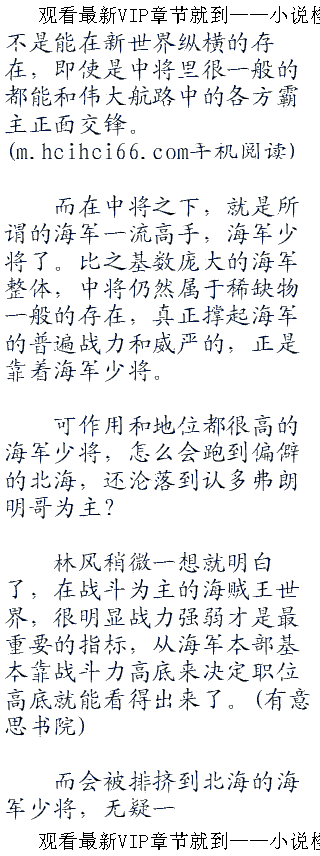 观看最新VIP章节就到——小说检
不是能在新世界纵横的存
在，即使是中将里很一般的
都能和伟大航路中的各方霸
主正面交锋。
(m.hcihci66.com手机阅读)
而在中将之下，就是所
谓的海军一流高手，海军少
将了。比之基数庞大的海军
整体，中将仍然属于稀缺物
一般的存在，真正撑起海军
的普遍战力和威严的，正是
靠着海军少将。
可作用和地位都很高的
海军少将，怎么会跑到偏僻
的北海，还沦落到认多弗朗
明哥为主？
林风稍微一想就明白
了，在战斗为主的海贼王世
界，很明显战力强弱才是最
重要的指标，从海军本部基
本靠战斗力高底来决定职位
高底就能看得出来了。(有意
思书院)
而会被排挤到北海的海
军少将，无疑一
观看最新VIP章节就到——小说检